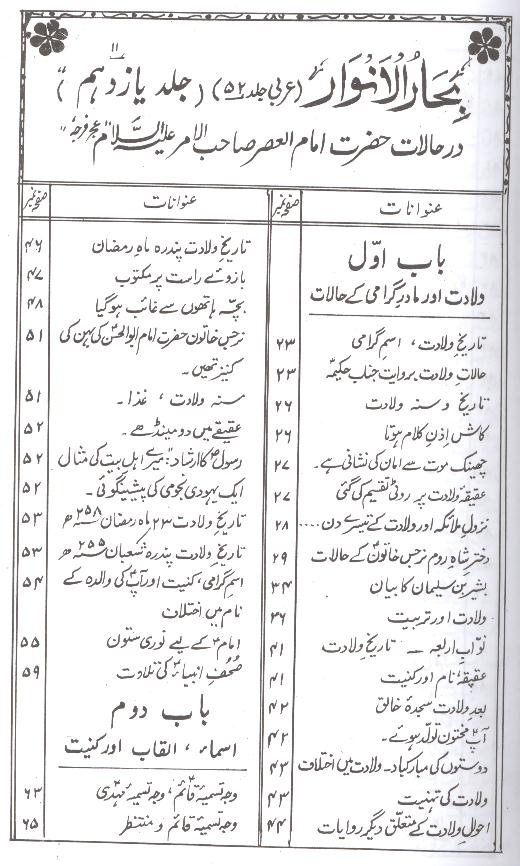 ۷۸۶
بحارُ الانوار (عربی جلد ۵۲) (جلد یازدہم ۱۱)
در حالات حضرت امام العصر صاحب الامر علیہ السلام عجل فرجہ
عنوانات صفحہ نمبر
باب اوّل
ولادت اور مادرِ گرامی کے حالات
تاریخِ ولادت ، اسمِ گرامی ۲۳
حالاتِ ولادت بروایت جناب حکیمہؓ ۲۳
تاریخ و سنہ ولادت ۲۶
کاش اِذنِ کلام ہوتا ۲۶
چھینک موت سے امان کی نشانی ہے۔ ۲۷
عقیقۂ ولادت پر روٹی تقسیم کی گئی ۲۷
نزولِ ملائکہ اور ولادت کے تیسرے دن .... ۲۸
دخترِ شاہِ روم نرجس خاتونؑ کے حالات ۲۹
بشیر بن سلیمان کا بیان ۳۴
ولادت اور تربیت ۳۶
نوّابِ اربعہ — تاریخِ ولادت ۴۱
عقیقہ، نام اور کنیت ۴۱
بعدِ ولادت سجدۂ خالق ۴۲
آپؑ مختون تولّد ہوئے۔ ۴۲
دوستوں کی مبارکباد۔ ولادت میں اختلاف ۴۳
ولادت کی تہنیت ۴۳
احوالِ ولادت کے متعلق دیگر روایات ۴۴
عنوانات صفحہ نمبر
تاریخِ ولادت پندرہ ماہِ رمضان ۴۶
بازوئے راست پر مکتوب ۴۷
بچّہ ہاتھوں سے غائب ہوگیا ۴۸
نرجس خاتون حضرت امام ابوالحسنؑ کی بہن کی ۵۱
کنیز تھیں۔
سنہ ولادت ، غذا۔ ۵۱
عقیقے میں دو مینڈھے۔ ۵۲
رسولؐ کا ارشاد: میرے اہلِ بیت کی مثال ۵۲
ایک یہودی نجومی کی پیشینگوئی۔ ۵۲
تاریخِ ولادت ۲۳ ماہ رمضان ۲۵۸ھ ۵۳
تاریخِ ولادت پندرہ شعبان ۲۵۵ھ ۵۳
اسمِ گرامی، کنیت اور آپؑ کی والدہ کے ۵۴
نام میں اختلاف
امامؑ کے لیے نوری ستون ۵۵
صُحُفِ انبیاءؑ کی تلاوت ۵۹
باب دوم
اسماء ، القاب اور کنیت
وجہ تسمیۂ قائمؑ، وجہ تسمیۂ مہدی ۶۳
وجہ تسمیۂ قائم و منتظر ۶۵